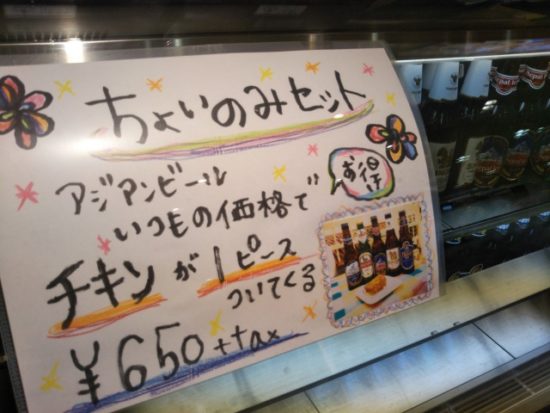 ちょいのみセット
アジアンビール
いつもの価格で
お得
チキンが1ピース
ついてくる
¥650+tax